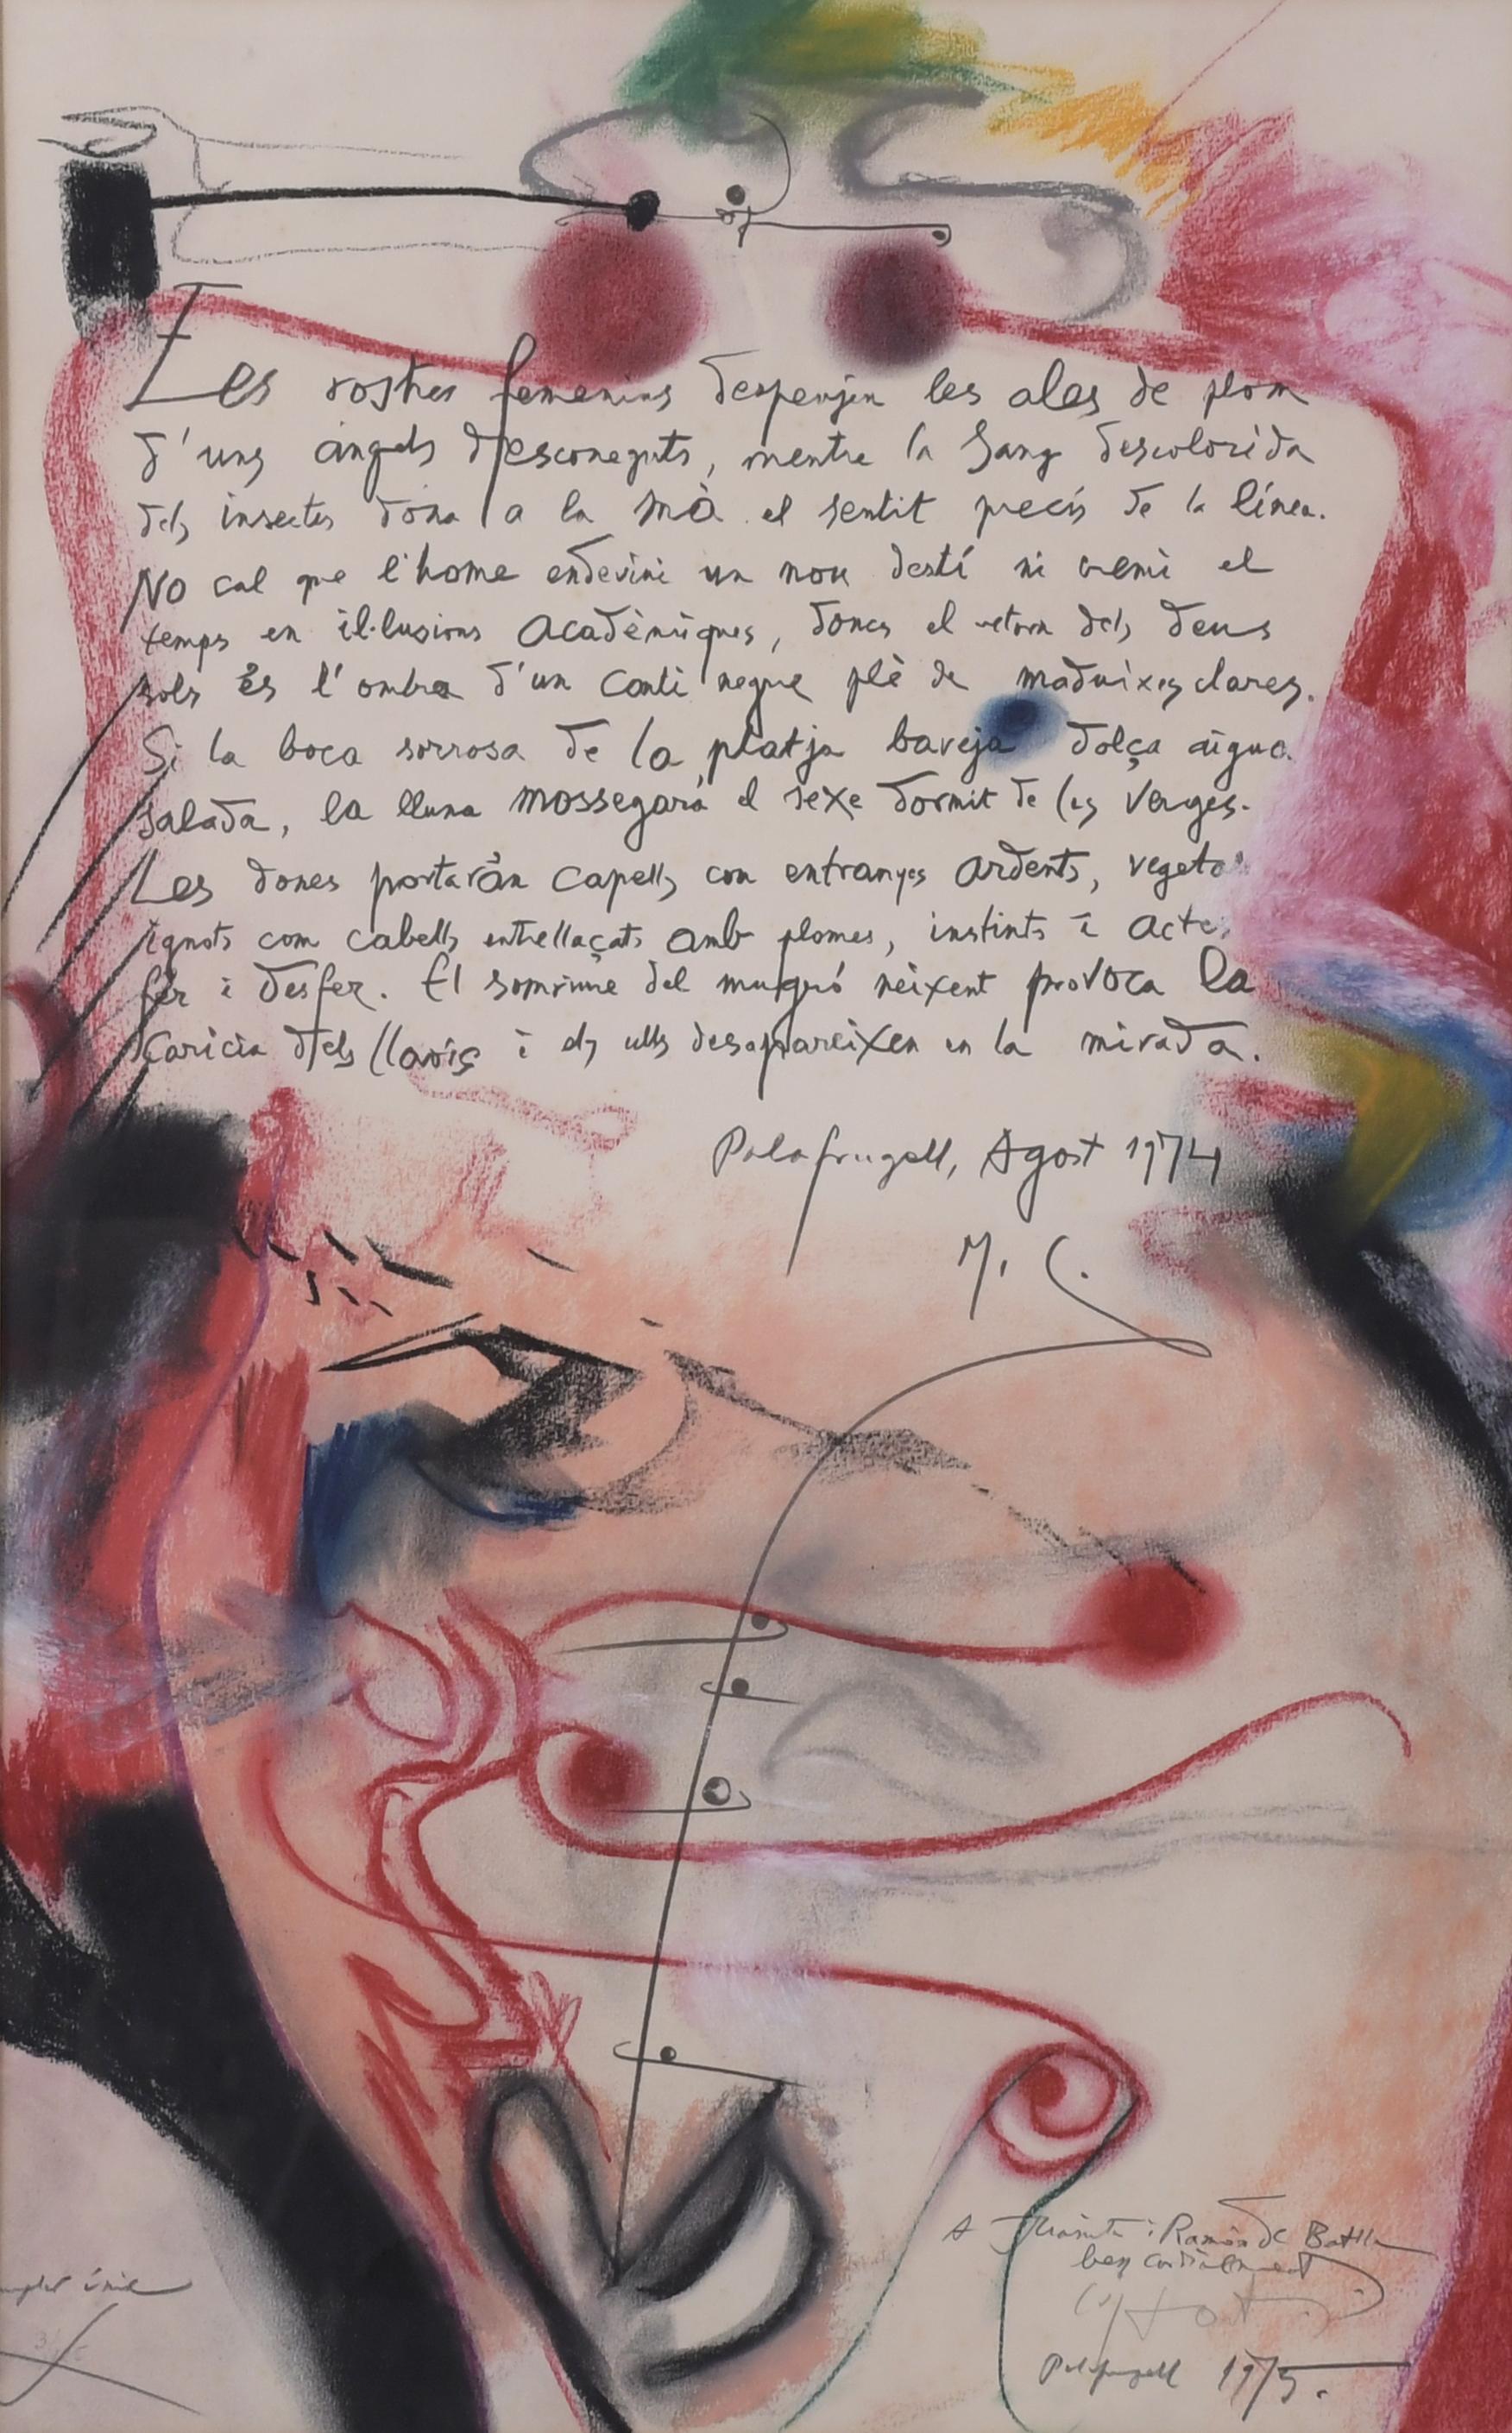 Les rostres femenins despenjen les ales de plom
d'uns àngels desconeguts, mentre la sang descolorida
dels insectes dona a la mà el sentit precís de la línea.
No cal que l'home endevini un nou destí ni cremi el
temps en il·lusions acadèmiques, doncs el retorn dels deus
sols és l'ombra d'un canti negre plè de maduixes clares.
Si la boca sorrosa de la platja baveja dolça aigua
salada, la lluna mossegarà el sexe dormit de les verges.
Les dones portaràn capells com entranyes ardents, vegetals
ignots com cabells entrellaçats amb plomes, instints i actes
fer i desfer. El somriure del mugró neixent provoca la
caricia dels llavis i els ulls desapareixen en la mirada.
Palafrugell, Agost 1974
M. C.
A i Ramón de Batlle
ben cordialment
Palafrugell 1975.
únic